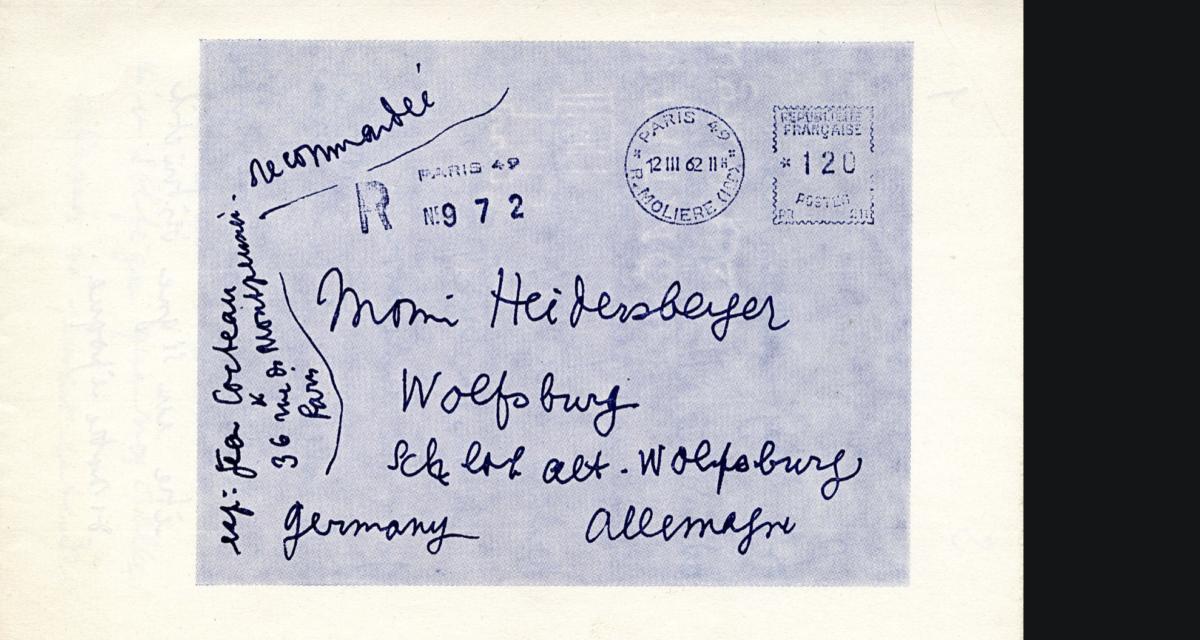 recommandée
PARIS 49
R
N° 9 7 2
PARIS 49
12 III 62 II
R. MOLIERE (1ER)
REPUBLIQUE
FRANÇAISE
* 120
POSTES
Momi Heidersberger
Wolfsburg
Schloß alt. Wolfsburg
Germany Allemagne
exp: Jean Cocteau
36 rue de Montpensier.
Paris